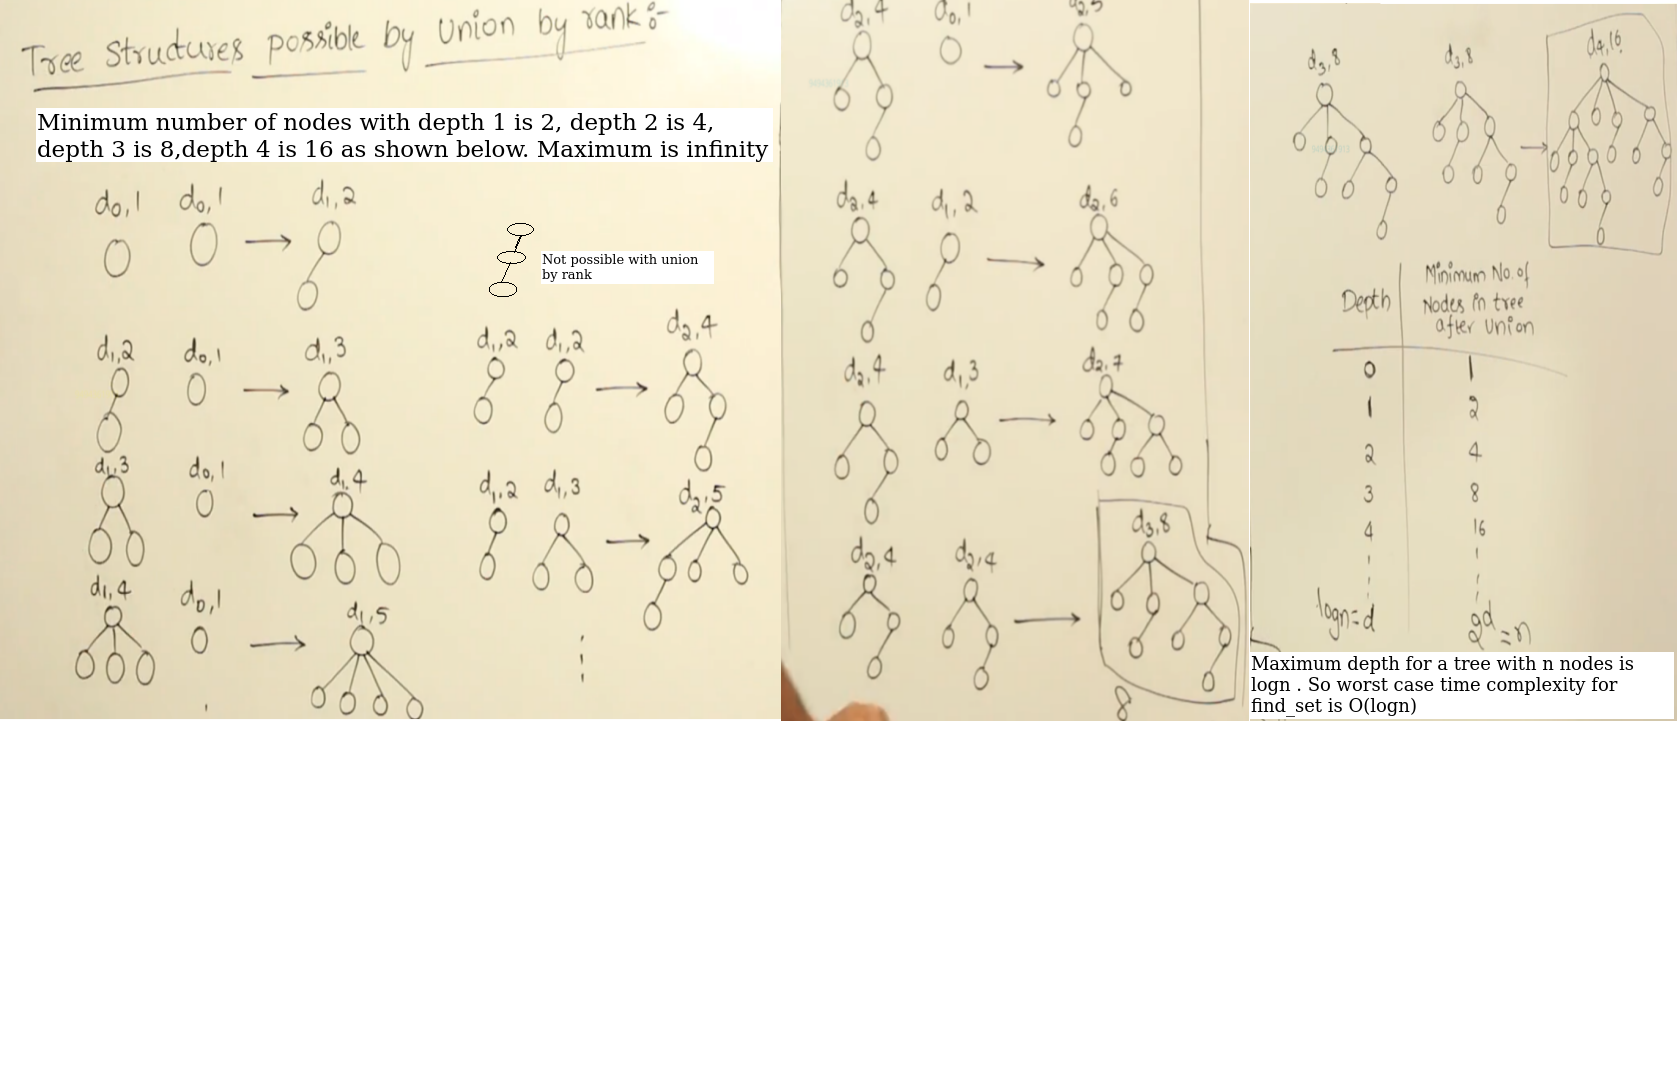 Tree Structures possible by Union by rank:-
Minimum number of nodes with depth 1 is 2, depth 2 is 4,
depth 3 is 8,depth 4 is 16 as shown below. Maximum is infinity
d₀,1 d₀,1 → d₁,2
Not possible with union
by rank
d₁,2 d₀,1 → d₁,3
d₁,2 d₁,2 → d₂,4
d₁,3 d₀,1 → d₁,4
d₁,2 d₁,3 → d₂,5
d₁,4 d₀,1 → d₁,5
d₂,4 d₀,1 → d₂,5
d₂,4 d₁,2 → d₂,6
d₂,4 d₁,3 → d₂,7
d₂,4 d₂,4 → d₃,8
8
d₃,8 d₃,8 → d₄,16
Depth Minimum No. of
Nodes in tree
after Union
0 1
1 2
2 4
3 8
4 16
logn=d 2ᵈ=n
Maximum depth for a tree with n nodes is
logn . So worst case time complexity for
find_set is O(logn)